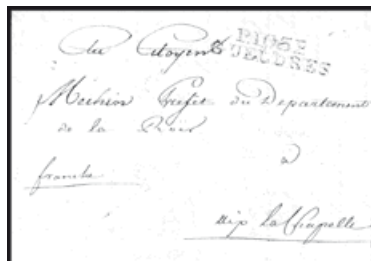 Au Citoyen
P105P
JEUDRES
Mechin Prefet du Departement
de la Roer
a
franche
aix la Chapelle